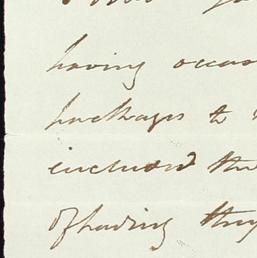 having occas
packages to
included the
of having they